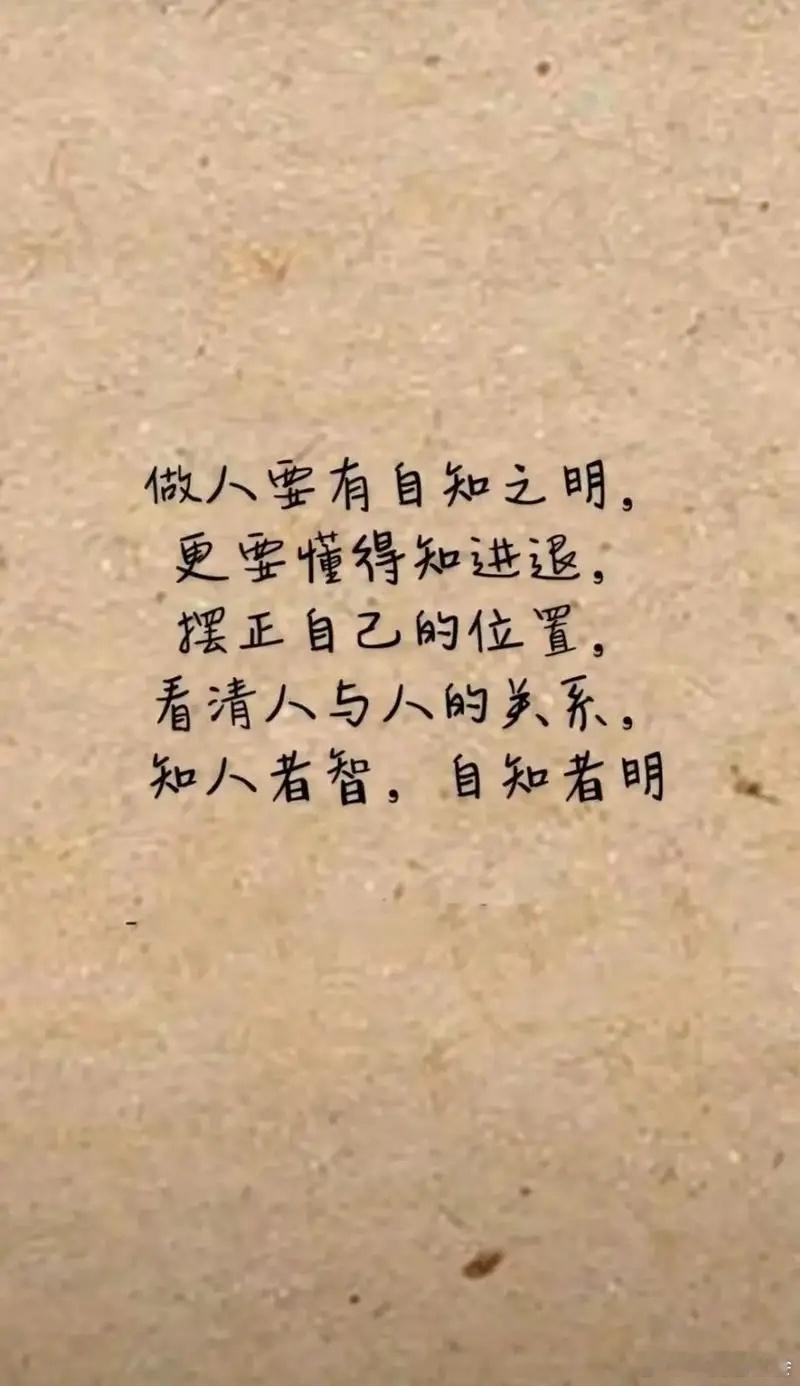 做人要有自知之明，
更要懂得知进退，
摆正自己的位置，
看清人与人的关系，
知人者智，自知者明